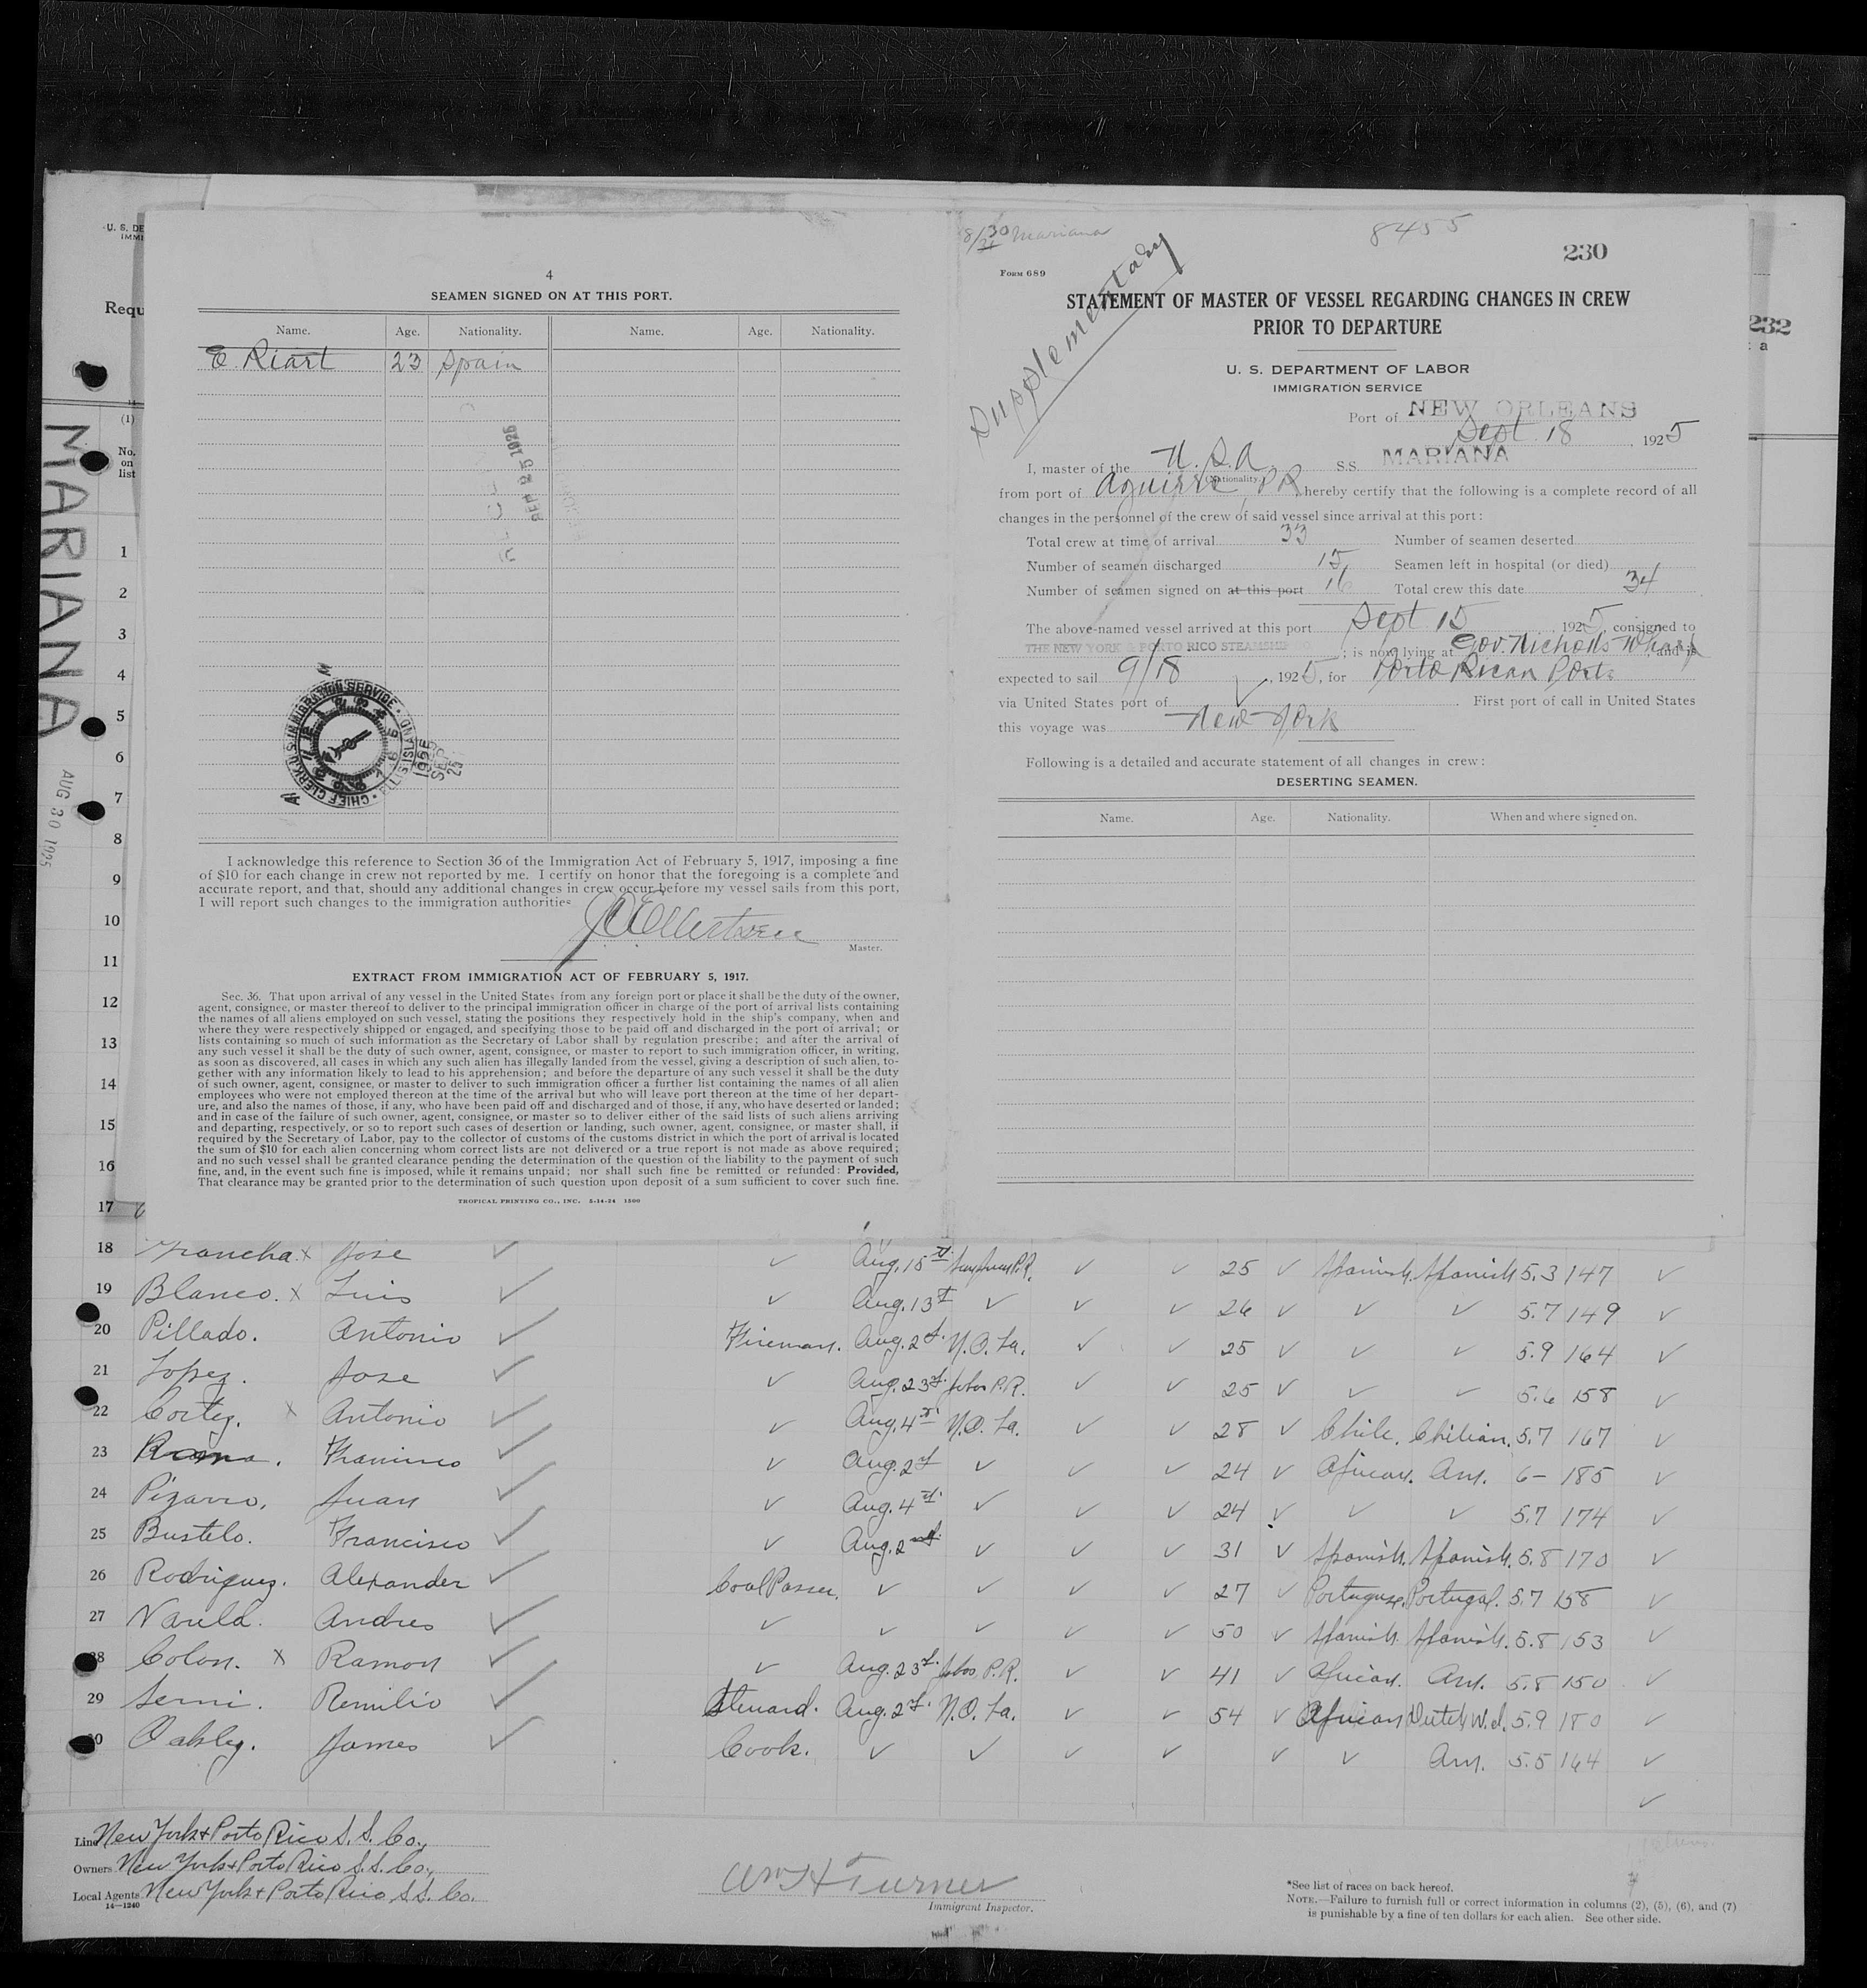 U. S. DE
IMMI
Requ
(1)
No.
on
list
MARIANA
AUG 30 1925
4
SEAMEN SIGNED ON AT THIS PORT.
Name. Age. Nationality. Name. Age. Nationality.
E. Riart 23 Spain
I acknowledge this reference to Section 36 of the Immigration Act of February 5, 1917, imposing a fine
of $10 for each change in crew not reported by me. I certify on honor that the foregoing is a complete and
accurate report, and that, should any additional changes in crew occur before my vessel sails from this port,
I will report such changes to the immigration authorities
Master.
EXTRACT FROM IMMIGRATION ACT OF FEBRUARY 5, 1917.
Sec. 36. That upon arrival of any vessel in the United States from any foreign port or place it shall be the duty of the owner,
agent, consignee, or master thereof to deliver to the principal immigration officer in charge of the port of arrival lists containing
the names of all aliens employed on such vessel, stating the positions they respectively hold in the ship's company, when and
where they were respectively shipped or engaged, and specifying those to be paid off and discharged in the port of arrival; or
lists containing so much of such information as the Secretary of Labor shall by regulation prescribe; and after the arrival of
any such vessel it shall be the duty of such owner, agent, consignee, or master to report to such immigration officer, in writing,
as soon as discovered, all cases in which any such alien has illegally landed from the vessel, giving a description of such alien, to-
gether with any information likely to lead to his apprehension; and before the departure of any such vessel it shall be the duty
of such owner, agent, consignee, or master to deliver to such immigration officer a further list containing the names of all alien
employees who were not employed thereon at the time of the arrival but who will leave port thereon at the time of her depart-
ure, and also the names of those, if any, who have been paid off and discharged and of those, if any, who have deserted or landed;
and in case of the failure of such owner, agent, consignee, or master so to deliver either of the said lists of such aliens arriving
and departing, respectively, or so to report such cases of desertion or landing, such owner, agent, consignee, or master shall, if
required by the Secretary of Labor, pay to the collector of customs of the customs district in which the port of arrival is located
the sum of $10 for each alien concerning whom correct lists are not delivered or a true report is not made as above required;
and no such vessel shall be granted clearance pending the determination of the question of the liability to the payment of such
fine, and, in the event such fine is imposed, while it remains unpaid; nor shall such fine be remitted or refunded: Provided,
That clearance may be granted prior to the determination of such question upon deposit of a sum sufficient to cover such fine.
TROPICAL PRINTING CO., INC. 5-14-24 1500
8/30 Mariana
8455
230
232
Supplementary
FORM 689
STATEMENT OF MASTER OF VESSEL REGARDING CHANGES IN CREW
PRIOR TO DEPARTURE
U. S. DEPARTMENT OF LABOR
IMMIGRATION SERVICE
Port of NEW ORLEANS
Sept. 18, 1925
I, master of the U.S.A. S.S. MARIANA
(Nationality)
from port of Aguirre P R hereby certify that the following is a complete record of all
changes in the personnel of the crew of said vessel since arrival at this port:
Total crew at time of arrival 33 Number of seamen deserted
Number of seamen discharged 15 Seamen left in hospital (or died)
Number of seamen signed on at this port 16 Total crew this date 34
The above-named vessel arrived at this port Sept 15, 1925, consigned to
THE NEW YORK & PORTO RICO STEAMSHIP CO.; is now lying at Gov. Nicholls Wharf, and is
expected to sail 9/18, 1925, for Porto Rican Ports
via United States port of . First port of call in United States
this voyage was New York
Following is a detailed and accurate statement of all changes in crew:
DESERTING SEAMEN.
Name. Age. Nationality. When and where signed on.
1
2
3
4
5
6
7
8
9
10
11
12
13
14
15
16
17
18 Jose Aug. 15 25 Spanish. Spanish 5.3 147
19 Blanco. x Luis Aug. 13 26 5.7 149
20 Pillado. Antonio Fireman. Aug. 2 N.O. La. 25 5.9 164
21 Lopez. Jose Aug. 23 Jobos P.R. 25 5.6 158
22 Cortez. x Antonio Aug. 4 N.O. La. 28 Chile. Chilian. 5.7 167
23 Francisco Aug. 2 24 African. Am. 6 – 185
24 Pizarro, Juan Aug. 4 24 5.7 174
25 Bustelo. Francisco Aug. 2 31 Spanish. Spanish. 5.8 170
26 Rodriguez. Alexander Coal Passer. 27 Portuguese. Portugal. 5.7 158
27 Varela. Andres 50 Spanish. Spanish. 5.8 153
28 Colon. x Ramon Aug. 23 Jobos, P.R. 41 African. Am. 5.8 150
29 Remilio Steward. Aug. 2 N.O. La. 54 African Dutch W.I. 5.9 180
30 Oakley. James Cook. Am. 5.5 164
Line New York & Porto Rico S. S. Co.,
Owners New York & Porto Rico S.S. Co.,
Local Agents New York & Porto Rico S.S. Co.
14—1240
Wm H Turner
Immigrant Inspector.
*See list of races on back hereof.
NOTE.—Failure to furnish full or correct information in columns (2), (5), (6), and (7)
is punishable by a fine of ten dollars for each alien. See other side.